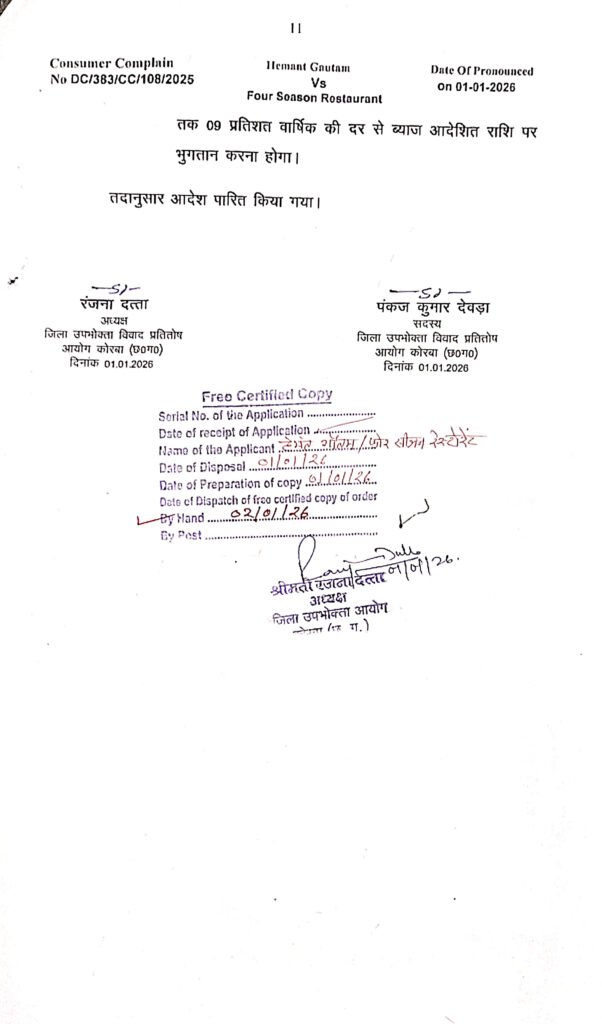 11
Consumer Complain
No DC/383/CC/108/2025
Hemant Gautam
Vs
Four Season Rostaurant
Date Of Pronounced
on 01-01-2026
तक 09 प्रतिशत वार्षिक की दर से ब्याज आदेशित राशि पर
भुगतान करना होगा।
तदानुसार आदेश पारित किया गया।
रंजना दत्ता
अध्यक्ष
जिला उपभोक्ता विवाद प्रतितोष
आयोग कोरबा (छ0ग0)
दिनांक 01.01.2026
पंकज कुमार देवड़ा
सदस्य
जिला उपभोक्ता विवाद प्रतितोष
आयोग कोरबा (छ0ग0)
दिनांक 01.01.2026
Free Certified Copy
Serial No. of the Application
Date of receipt of Application
Name of the Applicant हेमंत गौतम / फोर सीजन रेस्टोरेंट
Date of Disposal 01/01/26
Date of Preparation of copy 01/01/26
Date of Dispatch of free certified copy of order
By Hand 02/01/26
By Post
01/01/26.
श्रीमती रंजना दत्ता
अध्यक्ष
जिला उपभोक्ता आयोग